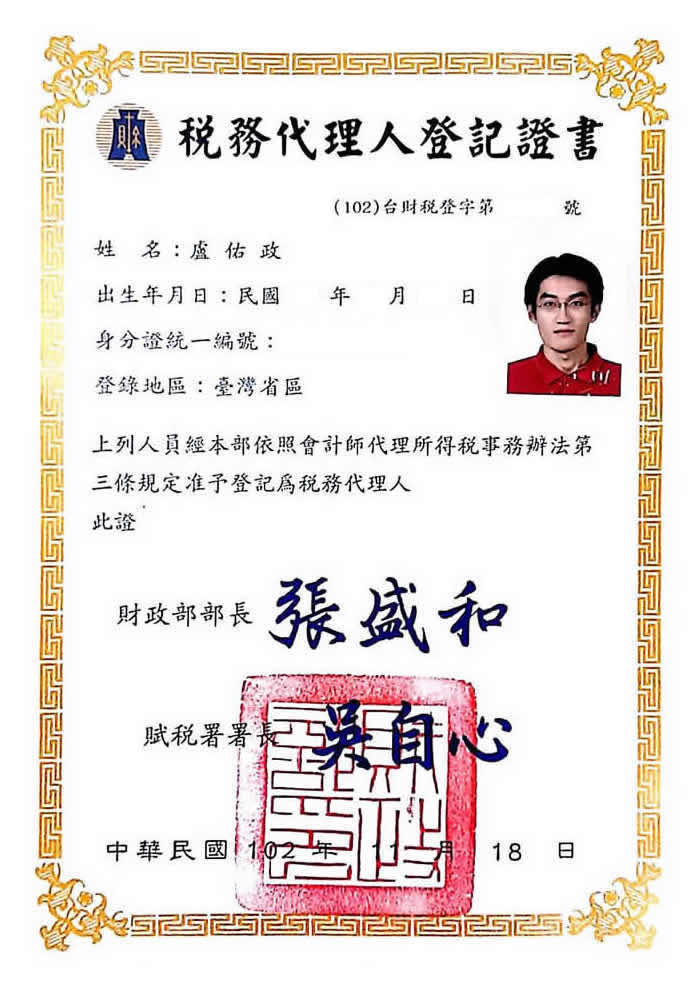 財
稅務代理人登記證書
(102)台財稅登字第 號
姓 名：盧佑政
出生年月日：民國 年 月 日
身分證統一編號：
登錄地區：臺灣省區
上列人員經本部依照會計師代理所得稅事務辦法第
三條規定准予登記為稅務代理人
此證
財政部部長 張盛和
賦稅署署長 吳自心
中華民國 102 年 11 月 18 日